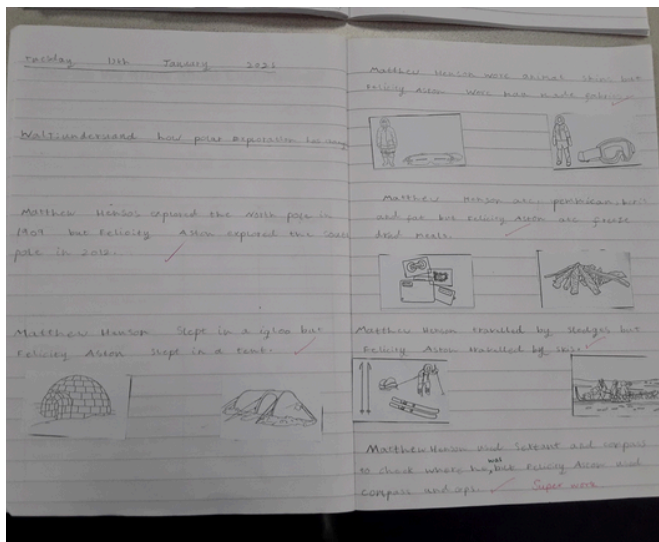 Tuesday 11th January 2021
Walt: understand how polar exploration has changed
Matthew Henson explored the North pole in
1909 but Felicity Aston explored the south
pole in 2012.
Matthew Henson Slept in a igloo but
Felicity Aston slept in a tent.
Matthew Henson wore animal skins but
Felicity Aston wore man made fabrics
Matthew Henson ate pemmican,
and but Felicity Aston ate freeze
dried meals.
Matthew Henson travelled by sledges but
Felicity Aston travelled by skis.
Matthew Henson used and compass
to check where he was but Felicity Aston used
compass and gps.
Super work